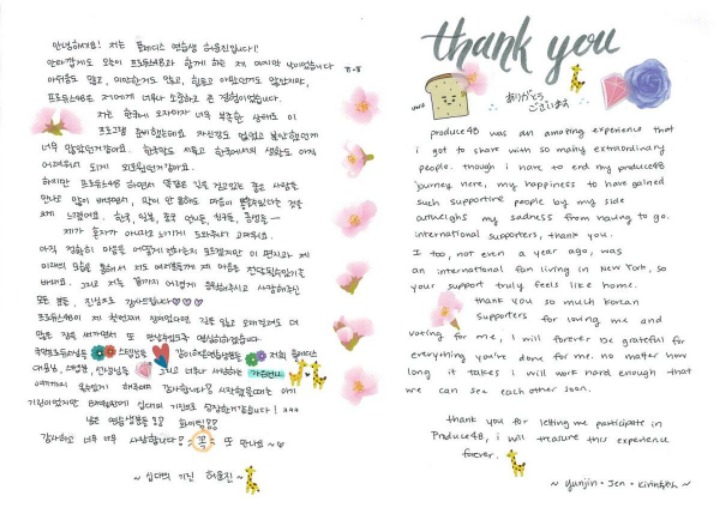 안녕하세요! 저는 플레디스 연습생 허윤진입니다!
안타깝게도 오늘이 프로듀스48과 함께 하는 제 마지막 날이었습니다 ㅠ-ㅠ
아쉬움도 많고, 미안한거도 많고, 힘들고 아팠던거도 많았지만,
프로듀스48은 저에게 너무나 소중하고 큰 경험이었습니다.
저는 한국에 오자마자 너무 부족한 상태로 이
프로그램 준비했는데요 자신감도 없었고 불안했던게
너무 많았던거같아요. 한국말도 서툴고 한국에서의 생활도 아직
어려워서 되게 외로웠던거같아요.
하지만 프로듀스48 하면서 똑같은 길을 걷고있는 좋은 사람들
만나고 많이 배우면서, 말이 안 통해도 마음이 통할수있다는 것을
크게 느꼈어요. 한국, 일본, 중국 언니들, 친구들, 동생들
제가 혼자가 아니라고 느끼게 도와줘서 고마워요.
아직 정확히 마음을 어떻게 전하는지 모르겠지만 이 편지과 제
미래의 모습을 통해서 저도 여러분들께 제 마음을 전달되수있기를
바래요. 그리고 저를 끝까지 어렵게 응원해주시고 사랑해주신
모든 분들, 진심으로 감사드립니다 ♡♡♡
프로듀스48이 제 첫번째 길이었다면 길을 잃고 오래걸려도 더
많은 길을 써가면서 또 만날수있도록 열심히하겠습니다.
국민프로듀서님들 스텝님들 같이해준연습생분들 저희 플레디스
대표님, 스텝분들, 선생님들 그리고 너무나 사랑하는 가은언니
여기까지 올수있게 해주셔서 감사합니다! 시작했을때는 아기
기린이었지만 십대의 기린으로 성장한거같습니다! ㅋㅋㅋ
남은 연습생분들 화이팅
감사하고 너무 너무 사랑합니다! 꼭 또 만나요~
~ 십대의 기린 허윤진 ~
thank you
ありがとう
ございます
produce48 was an amazing experience that
i got to share with so many extraordinary
people. though i have to end my produce48
journey here, my happiness to have gained
such supportive people by my side
outweighs my sadness from having to go.
international supporters, thank you.
I too, not even a year ago, was
an international fan living in New York, so
your support truly feels like home.
thank you so much korean
supporters for loving me and
voting for me, i will forever be grateful for
everything you've done for me. no matter how
long it takes i will work hard enough that
we can see each other soon.
thank you for letting me participate in
Produce48, i will treasure this experience
forever.
~ yunjin · Jen · kirinちゃん ~